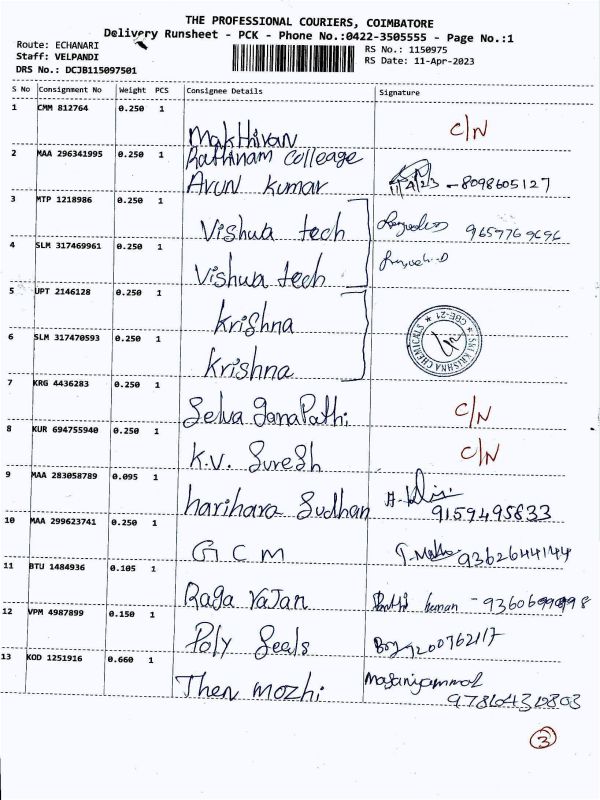 THE PROFESSIONAL COURIERS, COIMBATORE
Delivery Runsheet - PCK - Phone No.:0422-3505555 - Page No.:1
Route: ECHANARI RS No.: 1150975
Staff: VELPANDI RS Date: 11-Apr-2023
DRS No.: DCJB115097501
S No Consignment No Weight PCS Consignee Details Signature
1 CMM 812764 0.250 1
Makthivan C/N
2 MAA 296341995 0.250 1 Rathinam Colleage
Arun kumar 11/4/23 - 8098605127
3 MTP 1218986 0.250 1
Vishwa tech
4 SLM 317469961 0.250 1
Vishwa tech
5 UPT 2146128 0.250 1
Krishna
SRI KRISHNA CHEMICALS * CBE-21 *
6 SLM 317470593 0.250 1
Krishna
7 KRG 4436283 0.250 1
Selva ganapathi C/N
8 KUR 694755940 0.250 1
K.V. SureSh C/N
9 MAA 283058789 0.095 1
harihara Sudhan 9159495833
10 MAA 299623741 0.250 1
G C M 9362644144
11 BTU 1484936 0.105 1
Raga Vajan
12 VPM 4987899 0.150 1
Poly Seals 9200762117
13 KOD 1251916 0.660 1
Then mozhi
3